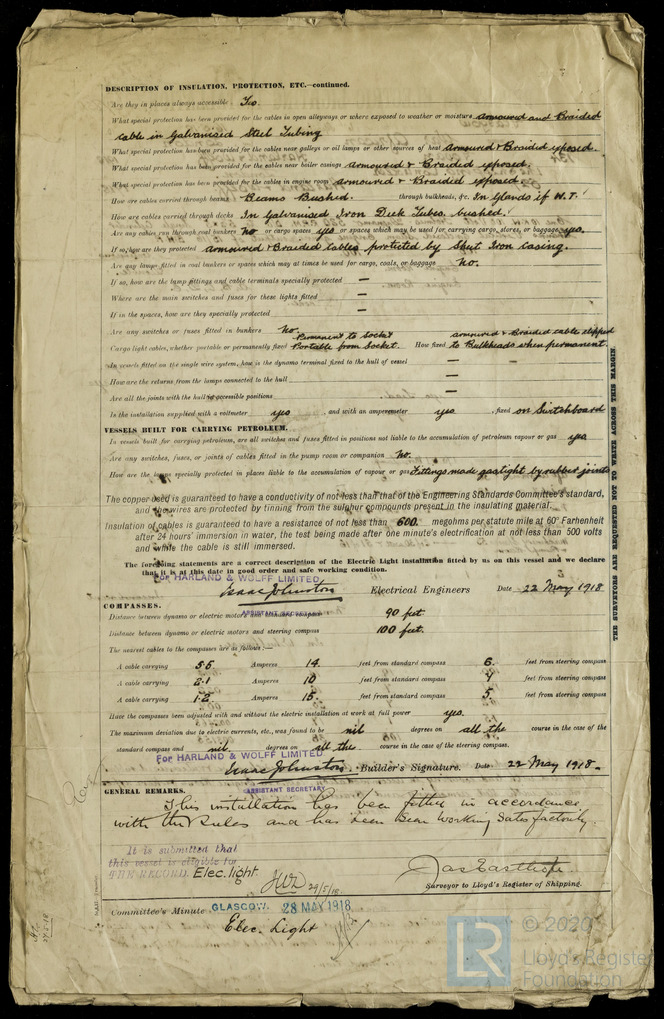 DESCRIPTION OF INSULATION, PROTECTION, ETC.—continued.
Are they in places always accessible
What special protection has been provided for the cables in open alleyways or where exposed to weather or moisture armoured and Braided
cable in Galvanised Steel Tubing
What special protection has been provided for the cables near galleys or oil lamps or other sources of heat armoured & Braided exposed.
What special protection has been provided for the cables near boiler casings armoured & Braided exposed.
What special protection has been provided for the cables in engine room armoured & Braided exposed.
How are cables carried through beams Beams Bushed. through bulkheads, &c. In Glands if W.T.
How are cables carried through decks In Galvanised Iron Deck Tubes, bushed.
Are any cables run through coal bunkers no or cargo spaces yes or spaces which may be used for carrying cargo, stores, or baggage yes.
If so, how are they protected armoured & Braided Cables protected by Sheet Iron casing.
Are any lamps fitted in coal bunkers or spaces which may at times be used for cargo, coals, or baggage no.
If so, how are the lamp fittings and cable terminals specially protected —
Where are the main switches and fuses for these lights fitted —
If in the spaces, how are they specially protected —
Are any switches or fuses fitted in bunkers no.
Permanent to Socket armoured & Braided cable clipped
Cargo light cables, whether portable or permanently fixed Portable from Socket. How fixed to Bulkheads when permanent.
In vessels fitted on the single wire system, how is the dynamo terminal fixed to the hull of vessel —
How are the returns from the lamps connected to the hull —
Are all the joints with the hull in accessible positions —
Is the installation supplied with a voltmeter yes and with an amperemeter yes , fixed on Switchboard
VESSELS BUILT FOR CARRYING PETROLEUM.
In vessels built for carrying petroleum, are all switches and fuses fitted in positions not liable to the accumulation of petroleum vapour or gas yes
Are any switches, fuses, or joints of cables fitted in the pump room or companion no.
How are the lamps specially protected in places liable to the accumulation of vapour or gas Fittings made gastight by rubber joints
The copper used is guaranteed to have a conductivity of not less than that of the Engineering Standards Committee's standard,
and the wires are protected by tinning from the sulphur compounds present in the insulating material.
Insulation of cables is guaranteed to have a resistance of not less than 600. megohms per statute mile at 60° Farhenheit
after 24 hours' immersion in water, the test being made after one minute's electrification at not less than 500 volts
and while the cable is still immersed.
The foregoing statements are a correct description of the Electric Light installation fitted by us on this vessel and we declare
that it is at this date in good order and safe working condition.
For HARLAND & WOLFF LIMITED
Isaac Johnston Electrical Engineers Date 22 May 1918
ASSISTANT SECRETARY
COMPASSES.
Distance between dynamo or electric motors and standard compass 90 feet.
Distance between dynamo or electric motors and steering compass 100 feet.
The nearest cables to the compasses are as follows:—
A cable carrying 5.5 Amperes 14. feet from standard compass 6. feet from steering compass
A cable carrying 2.1 Amperes 10 feet from standard compass feet from steering compass
A cable carrying 1.2 Amperes feet from standard compass 5 feet from steering compass
Have the compasses been adjusted with and without the electric installation at work at full power yes.
The maximum deviation due to electric currents, etc., was found to be nil degrees on all the course in the case of the
standard compass and nil degrees on all the course in the case of the steering compass.
For HARLAND & WOLFF LIMITED
Isaac Johnston. Builder's Signature. Date 22 May 1918.
ASSISTANT SECRETARY
GENERAL REMARKS.
This installation has been fitted in accordance
with the Rules and has been Seen working Satisfactorily.
It is submitted that
this vessel is eligible for
THE RECORD. Elec. light.
24/5/18
Surveyor to Lloyd's Register of Shipping.
Committee's Minute GLASGOW 28 MAY 1918
Elec. Light
THE SURVEYORS ARE REQUESTED NOT TO WRITE ACROSS THIS MARGIN
LR © 2020
Lloyd's Register
Foundation